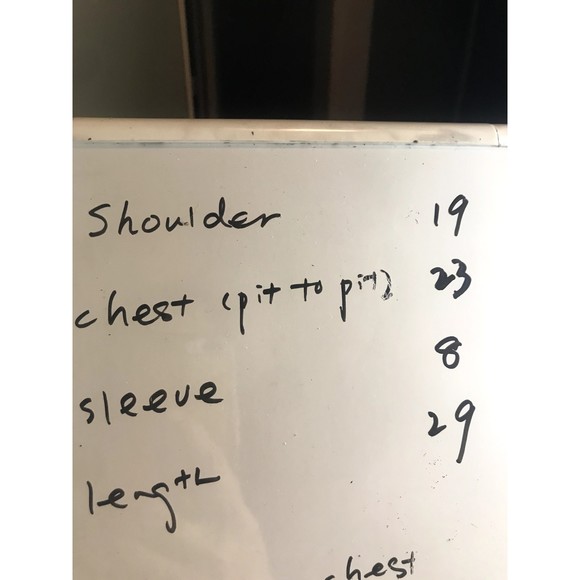 Shoulder 19
chest (pit to pit) 23
sleeve 8
length 29
chest